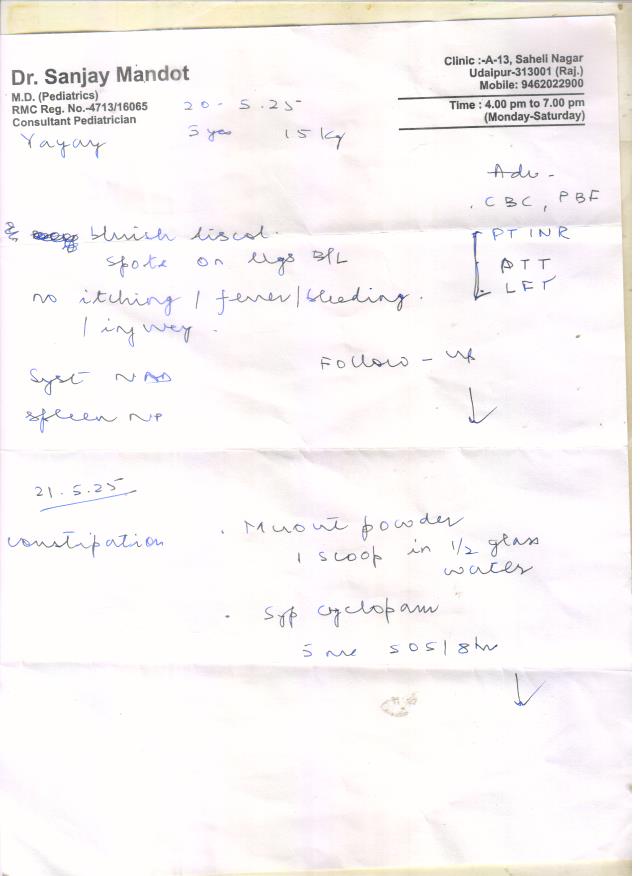 Dr. Sanjay Mandot
M.D. (Pediatrics)
RMC Reg. No.-4713/16065
Consultant Pediatrician
Clinic :-A-13, Saheli Nagar
Udaipur-313001 (Raj.)
Mobile: 9462022900
Time : 4.00 pm to 7.00 pm
(Monday-Saturday)
20-5.25
5 15 kg
Yayay
Adv -
. CBC, PBF
PT INR
LFT
bluish discol.
spots on legs B/L
no itching / fever / bleeding.
/ injury.
Follow-up
Syst NAD
Spleen NP
21.5.25
constipation
powder
1 scoop in 1/2 glass
water
. Syp cyclopam
5 ml SOS / 8 hr